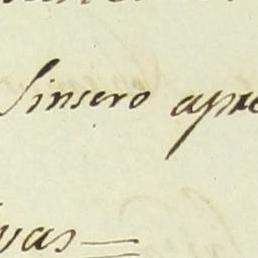 Sinsero apre
vas